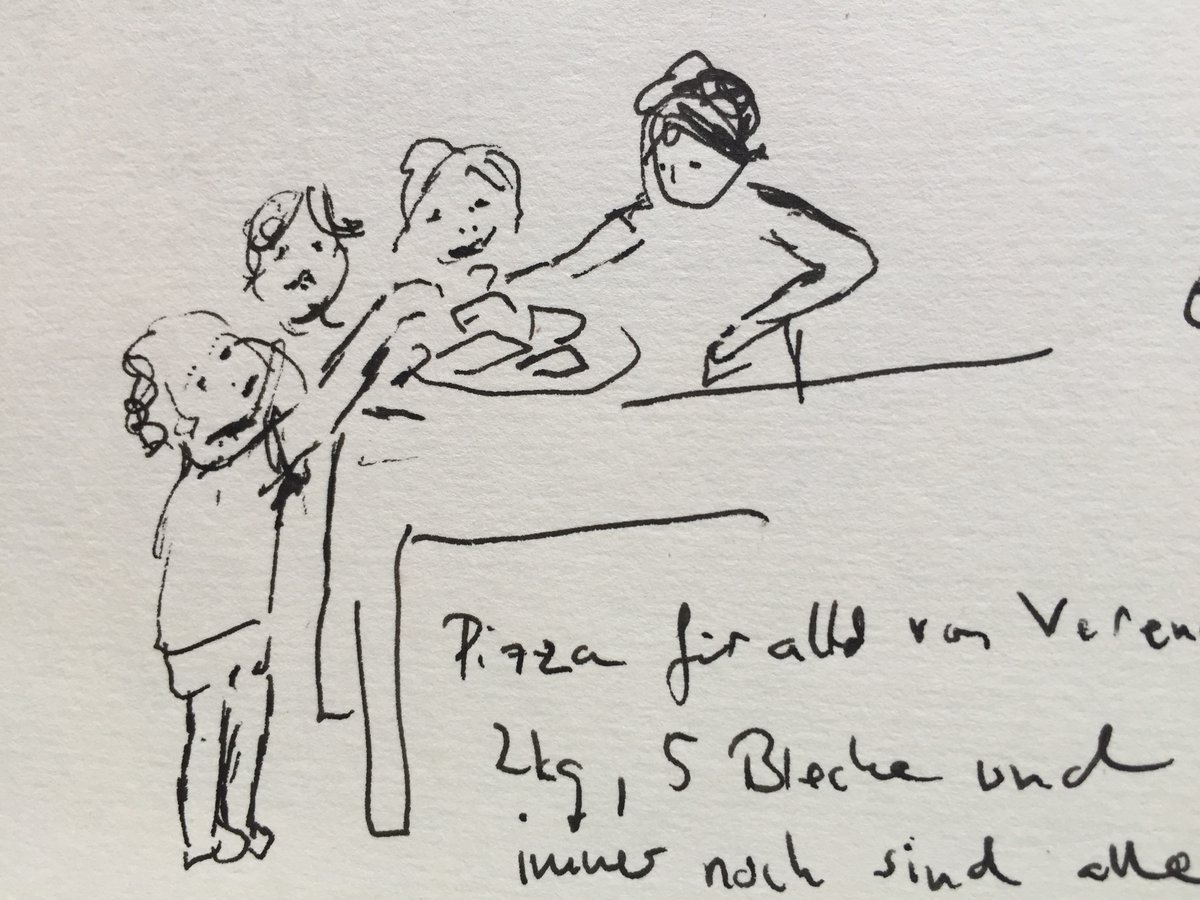 Pizza für alle von Veren
2kg, 5 Bleche und
immer noch sind alle